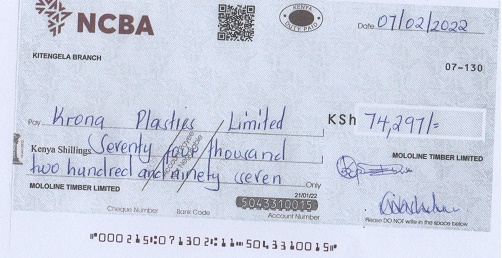 NCBA
KENYA
DUTY PAID
Date 07/02/2022
KITENGELA BRANCH
07-130
Pay Krona Plastics Limited
KSh 74,297/=
Kenya Shillings Seventy four thousand
two hundred and ninety seven Only
MOLOLINE TIMBER LIMITED
MOLOLINE TIMBER LIMITED
21/01/22
5043310015
Cheque Number Bank Code Account Number
Please DO NOT write in the space below
"000215:071302:11=5043310015"